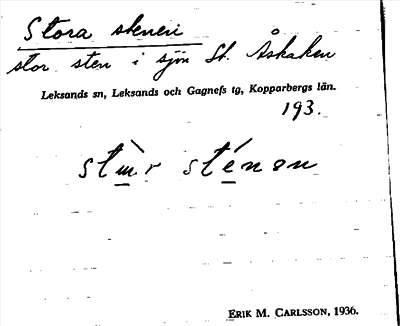 Stora stenen
stor sten i sjön St. Åskaken
Leksands sn, Leksands och Gagnefs tg, Kopparbergs län.
193.
sténən
ERIK M. CARLSSON, 1936.